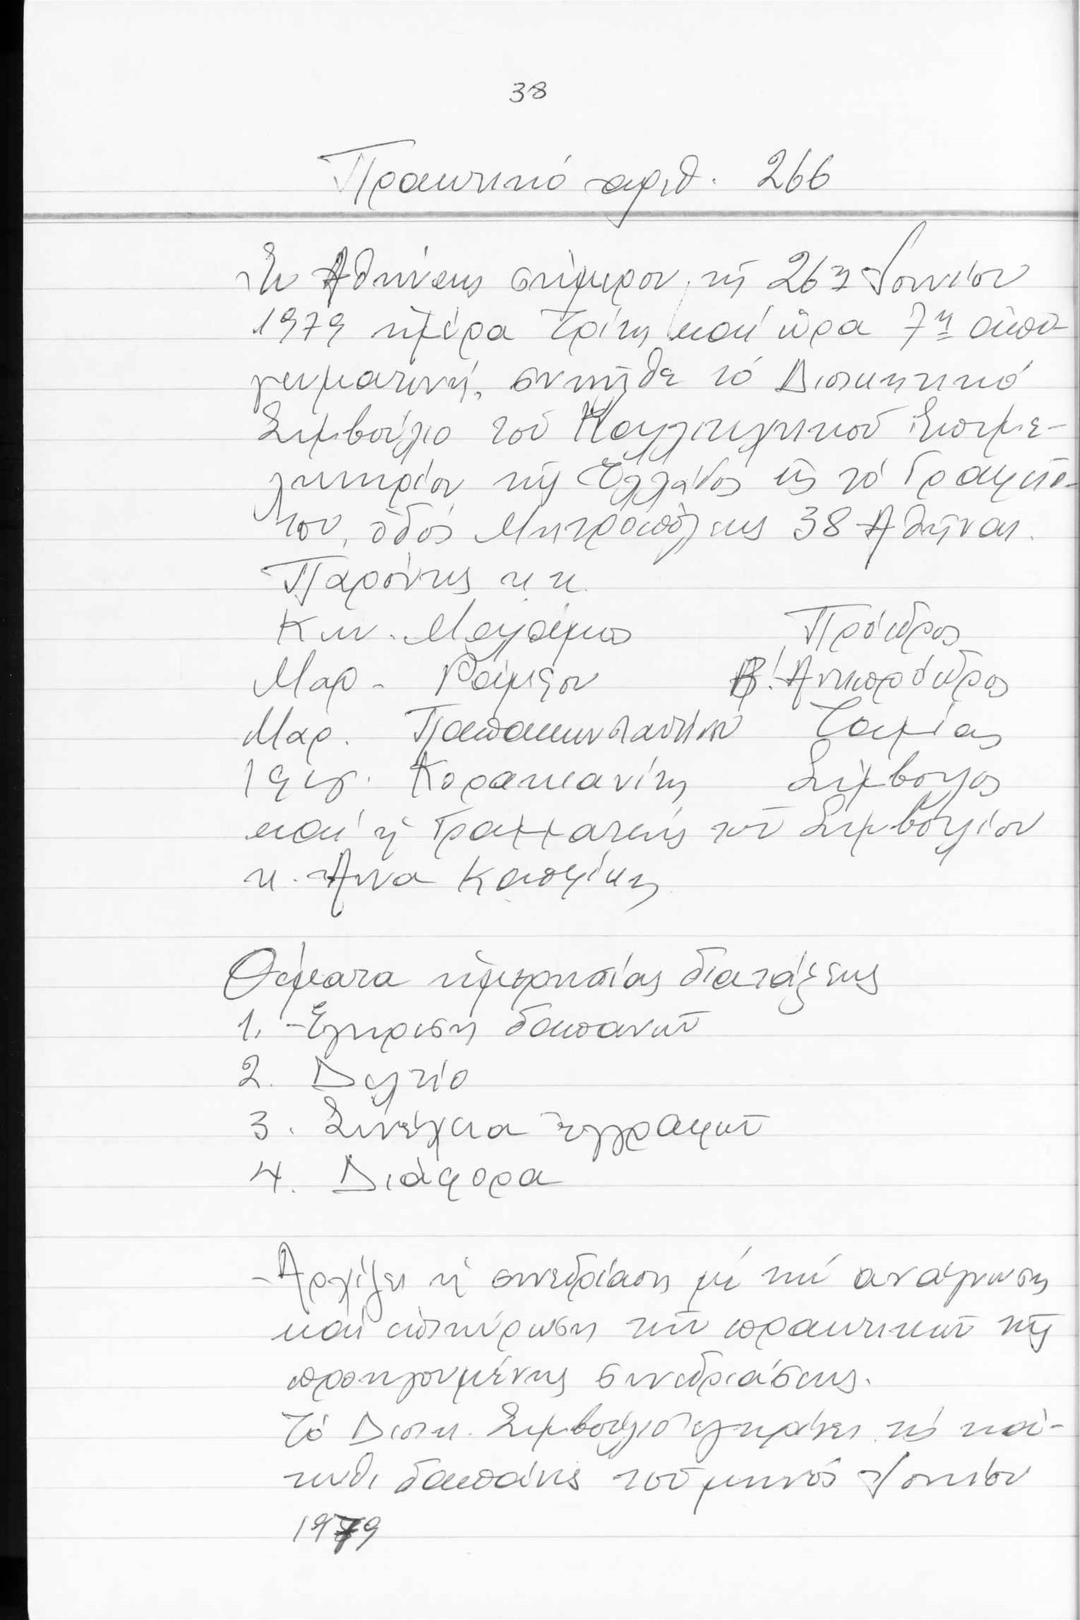 38
Πρακτικό ἀριθ. 266
Ἐν Ἀθήναις σήμερον τῇ 26ῃ Ἰουνίου
1979 ἡμέρα Τρίτη καί ὥρα 7η ἀπο-
γευματινή, συνῆλθε τό Διοικητικό
Συμβούλιο τοῦ Καλλιτεχνικοῦ Ἐπιμε-
λητηρίου τῆς Ἑλλάδος εἰς τό Γραφεῖο
του, ὁδός Μητροπόλεως 38 Ἀθῆναι.
Παρόντες κ.κ.
Κων. Μαλάμος Πρόεδρος
Μαρ. Ράμφου Β! Ἀντιπρόεδρος
Μαρ. Παπακωνσταντίνου Ταμίας
Κορακιανίτης Σύμβουλος
καί ἡ Γραμματεύς τοῦ Συμβουλίου
κ. Ἄννα Καψίκη
Θέματα ἡμερησίας διατάξεως
1. Ἔγκριση δαπανῶν
2. Δελτίο
3. Συνέχεια ἐγγραφῶν
4. Διάφορα
Ἀρχίζει ἡ συνεδρίαση μέ τήν ἀνάγνωση
καί ἐπικύρωση τῶν πρακτικῶν τῆς
προηγουμένης συνεδριάσεως.
Τό Διοικ. Συμβούλιο ἐγκρίνει τίς κά-
τωθι δαπάνες τοῦ μηνός Ἰουνίου
1979